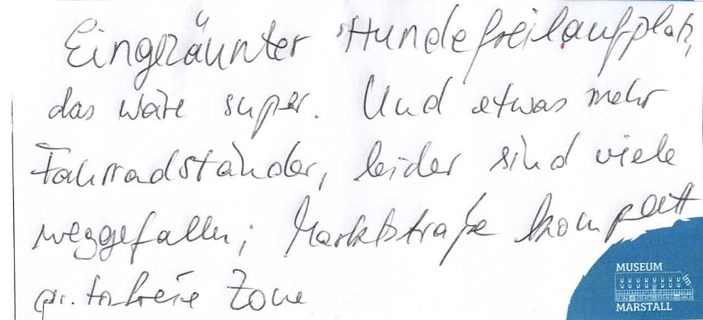 Eingezäunter Hundefreilaufplatz,
das wäre super. Und etwas mehr
Fahrradständer, leider sind viele
weggefallen; Marktstraße komplett
Zone
MUSEUM
im
MARSTALL